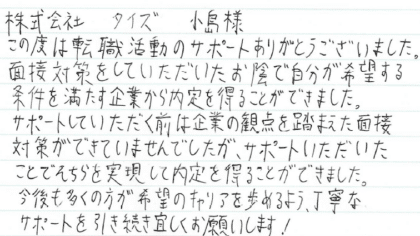 株式会社 タイズ 小島様
この度は転職活動のサポートありがとうございました。
面接対策をしていただいたお陰で自分が希望する
条件を満たす企業から内定を得ることができました。
サポートしていただく前は企業の観点を踏まえた面接
対策ができていませんでしたが、サポートいただいた
ことでそちらを実現して内定を得ることができました。
今後も多くの方が希望のキャリアを歩めるよう、丁寧な
サポートを引き続き宜しくお願いします!